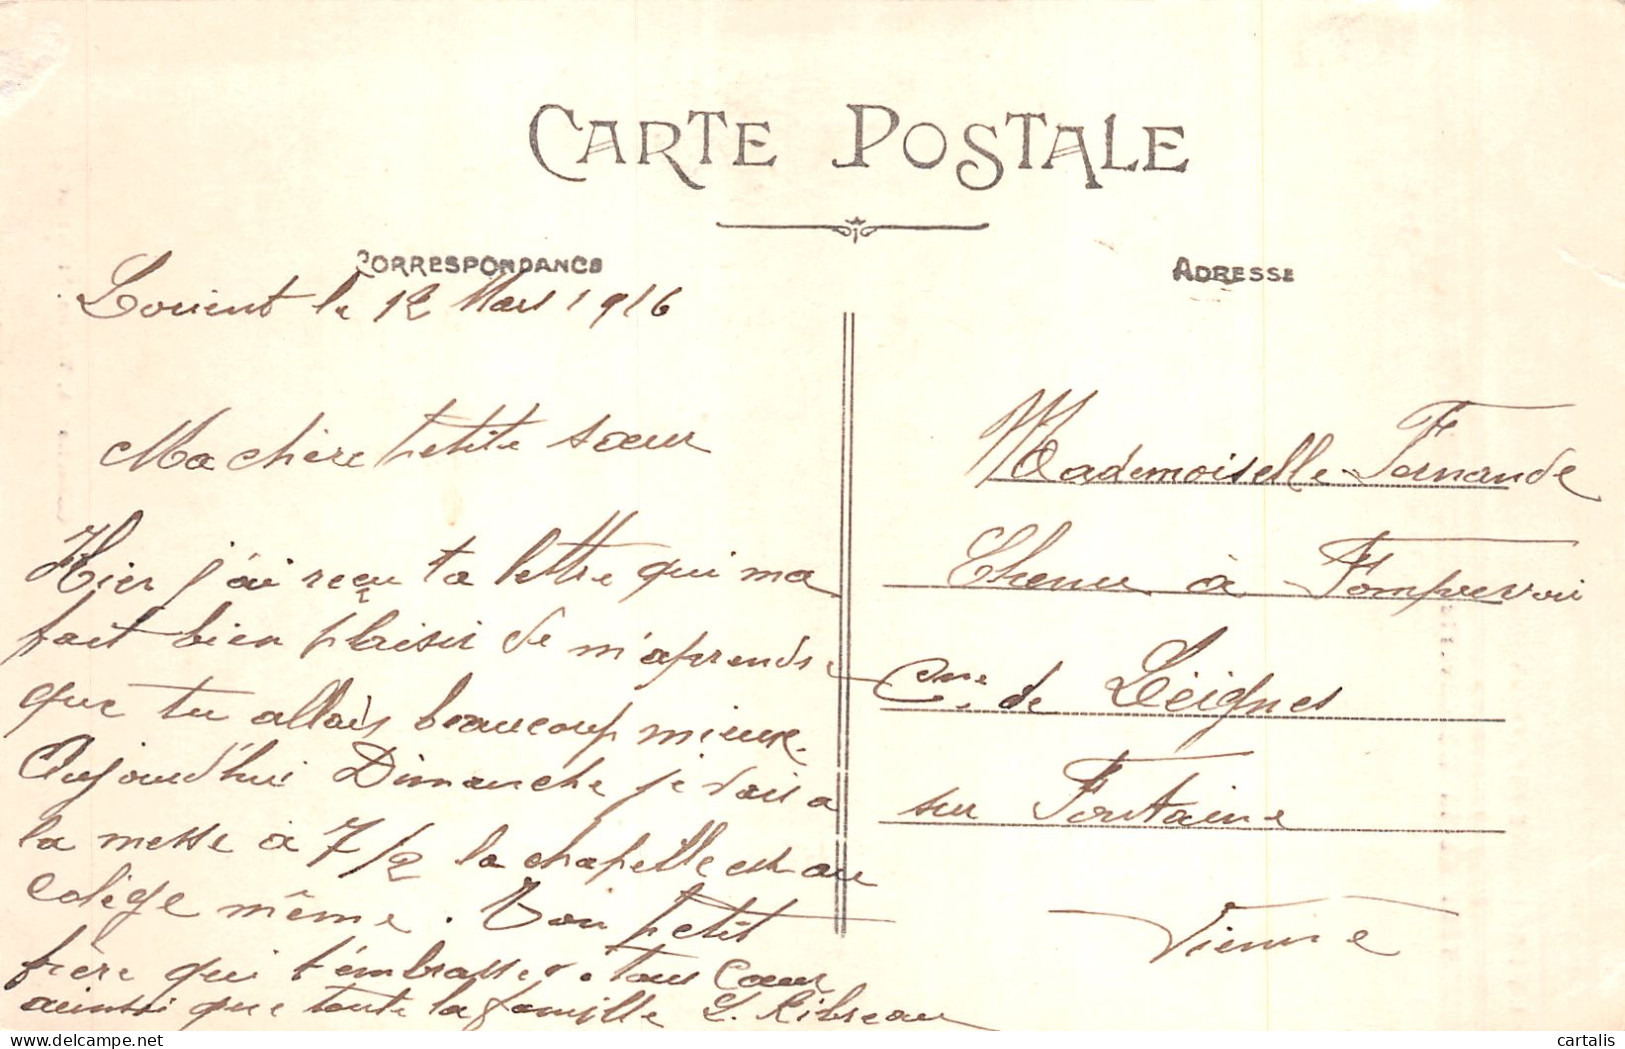 CARTE POSTALE
CORRESPONDANCE
ADRESSE
Lorient le 12 Mars 1916
Ma chère petite sœur
Hier j'ai reçu ta lettre qui ma
fait bien plaisir de m'aprendre
que tu allais beaucoup mieux.
Aujourd'hui Dimanche je vais a
la messe à 7/2 la chapelle est au
colège même. Ton petit
frère qui t'embrasse de tous cœur
ainssi que toute la famille L. Ribreau
Mademoiselle Fernande
Chenu à Fomprevoir
Cne de Leignes
sur Fontaine
Vienne
cartalis